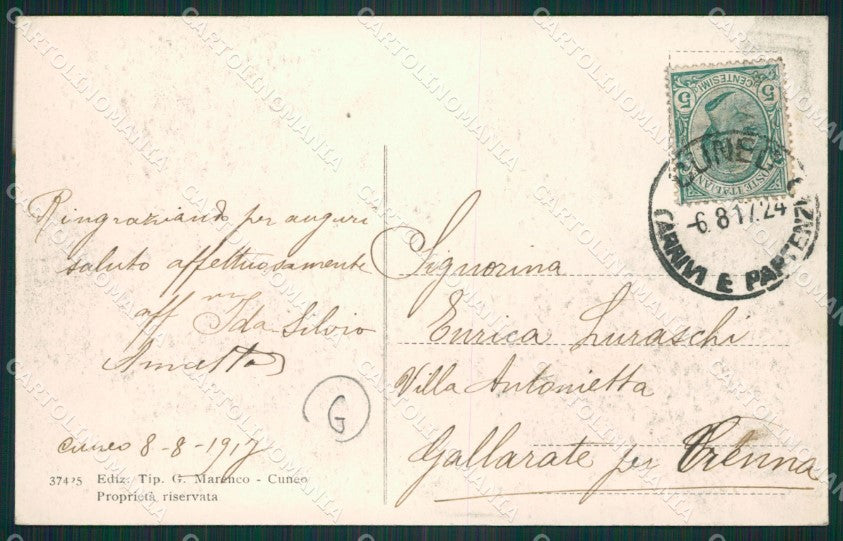 Ringraziando per auguri
saluto affettuosamente
aff.mi Ida Silvio
Cuneo 8-8-1917
37425 Ediz. Tip. G. Marenco - Cuneo
Proprietà riservata
G
CENTESIMI
5 5
POSTE ITALIANE
CUNEO
-6.8 17.24
(ARRIVI E PARTENZE
Signorina
Enrica Luraschi
Villa Antonietta
Gallarate per Crenna
CARTOLINOMANIA